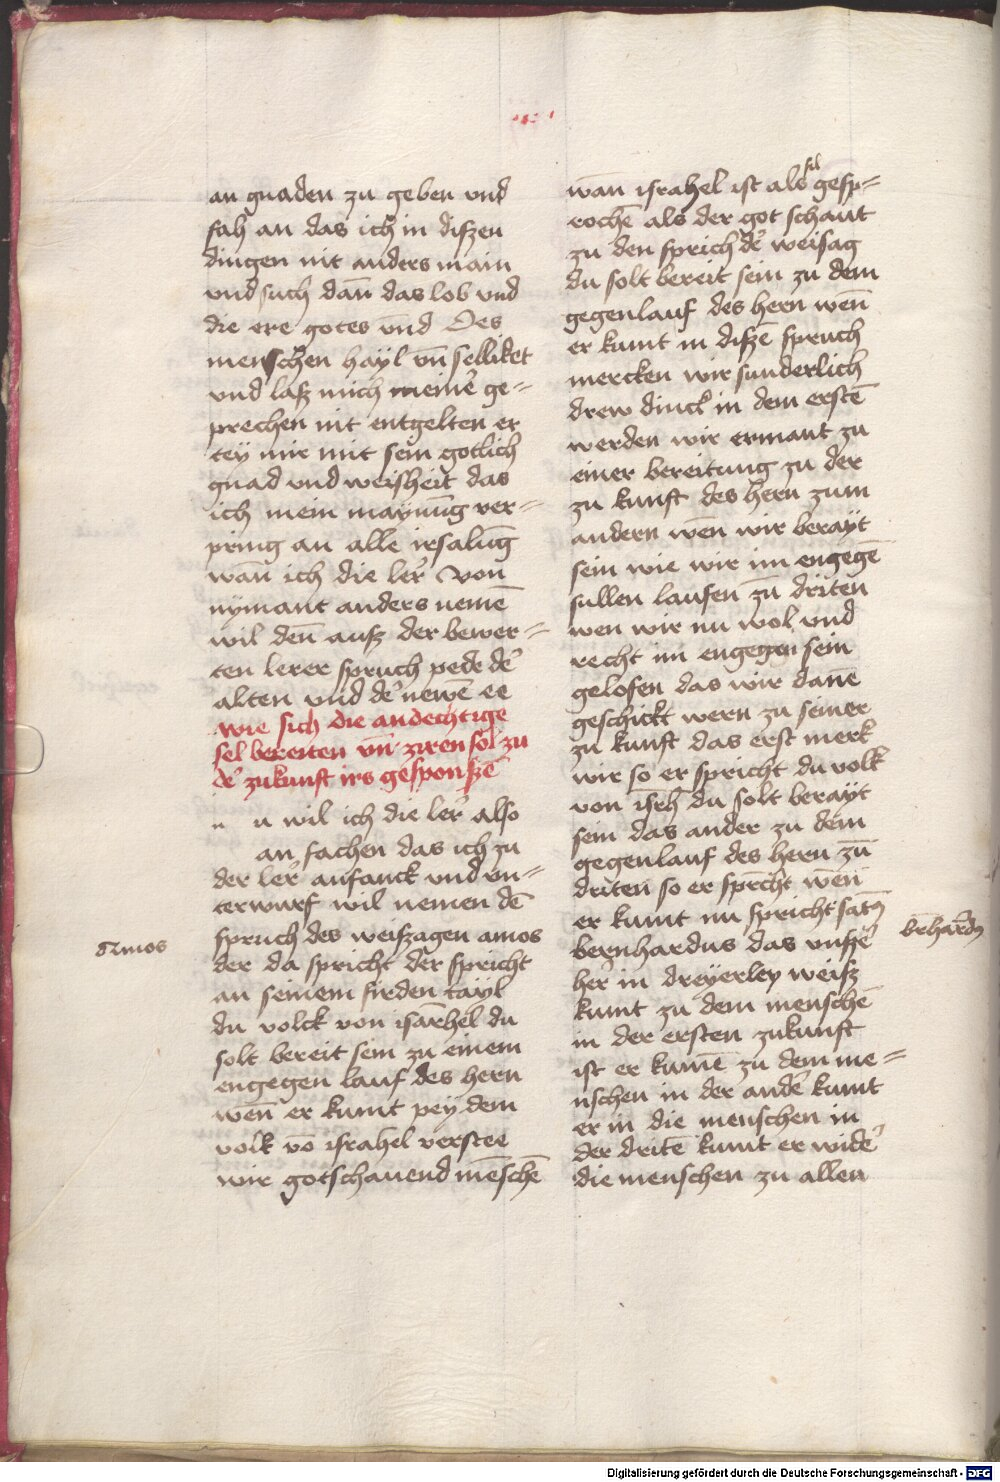 an gnaden zu geben vnd
fah an das ich in diszen
dingen nit anders main
vnd such dan̄ das lob vnd
die ere gotes vnd Des
menschen hayl vn̄ selliket
vnd lasz mich meine᷑ ge=
prechen nit entgelten er
tey mir mit sein gotlich
gnad vnd weisheit das
ich mein maynūg ver=
pring an alle irsalūg
wan̄ ich die ler von
nymant anders nemē
wil den̄ ausz der bewer=
ten lerer spruch pede de᷑
alten vnd de᷑ newē ee
wie sich die andechtige
sel bereiten vn̄ ziren sol zu
de᷑ zukunft irs gesponszē
n u wil ich die ler also
an fachen das ich zu
der ler anfanck vnd vn=
terwurf wil nemen dē
spruch des weiszagen amos
der da spricht der spricht
an seinem firden tayl
du volck von isarhel du
solt bereit sein zu einem
engegen lauf des hern
wen̄ er kumt pey dem
volk vō israhel verstee
wir gotschauend mēschē
Amos
wan israhel ist als fil gesp=
rochē als der got schaut
zu den sprich de᷑ weisag
du solt bereit sein zu dem
gegenlauf des hern wen̄
er kumt in diszē spruch
mercken wir sunderlich
drew dinck in dem erstē
werden wir ermant zu
einer bereitung zu der
zu kunft des hern zum
andern wen wir berayt
sein wie wir im engegē
sullen laufen zū driten
wen wir nu wol vnd
recht im engegen sein
gelofen das wir danē
geschickt wern zu seiner
zu kunft das erst merk
wir so er spricht du volk
von isrh̄ du solt berayt
sein das ander zu dem
gegenlauf des hern zū
driten so er sprcht wen̄
er kumt nu spricht sāt9
bernhardus das vnsse᷑
her in dreyerley weisz
kumt zu dem menschē
in der ersten zukunft
ist er kumē zu dem me=
nschen in der ande᷑ kumt
er in die menschen in
der dritē kumt er wide᷑
die menschen zu allen
b̄rhard9